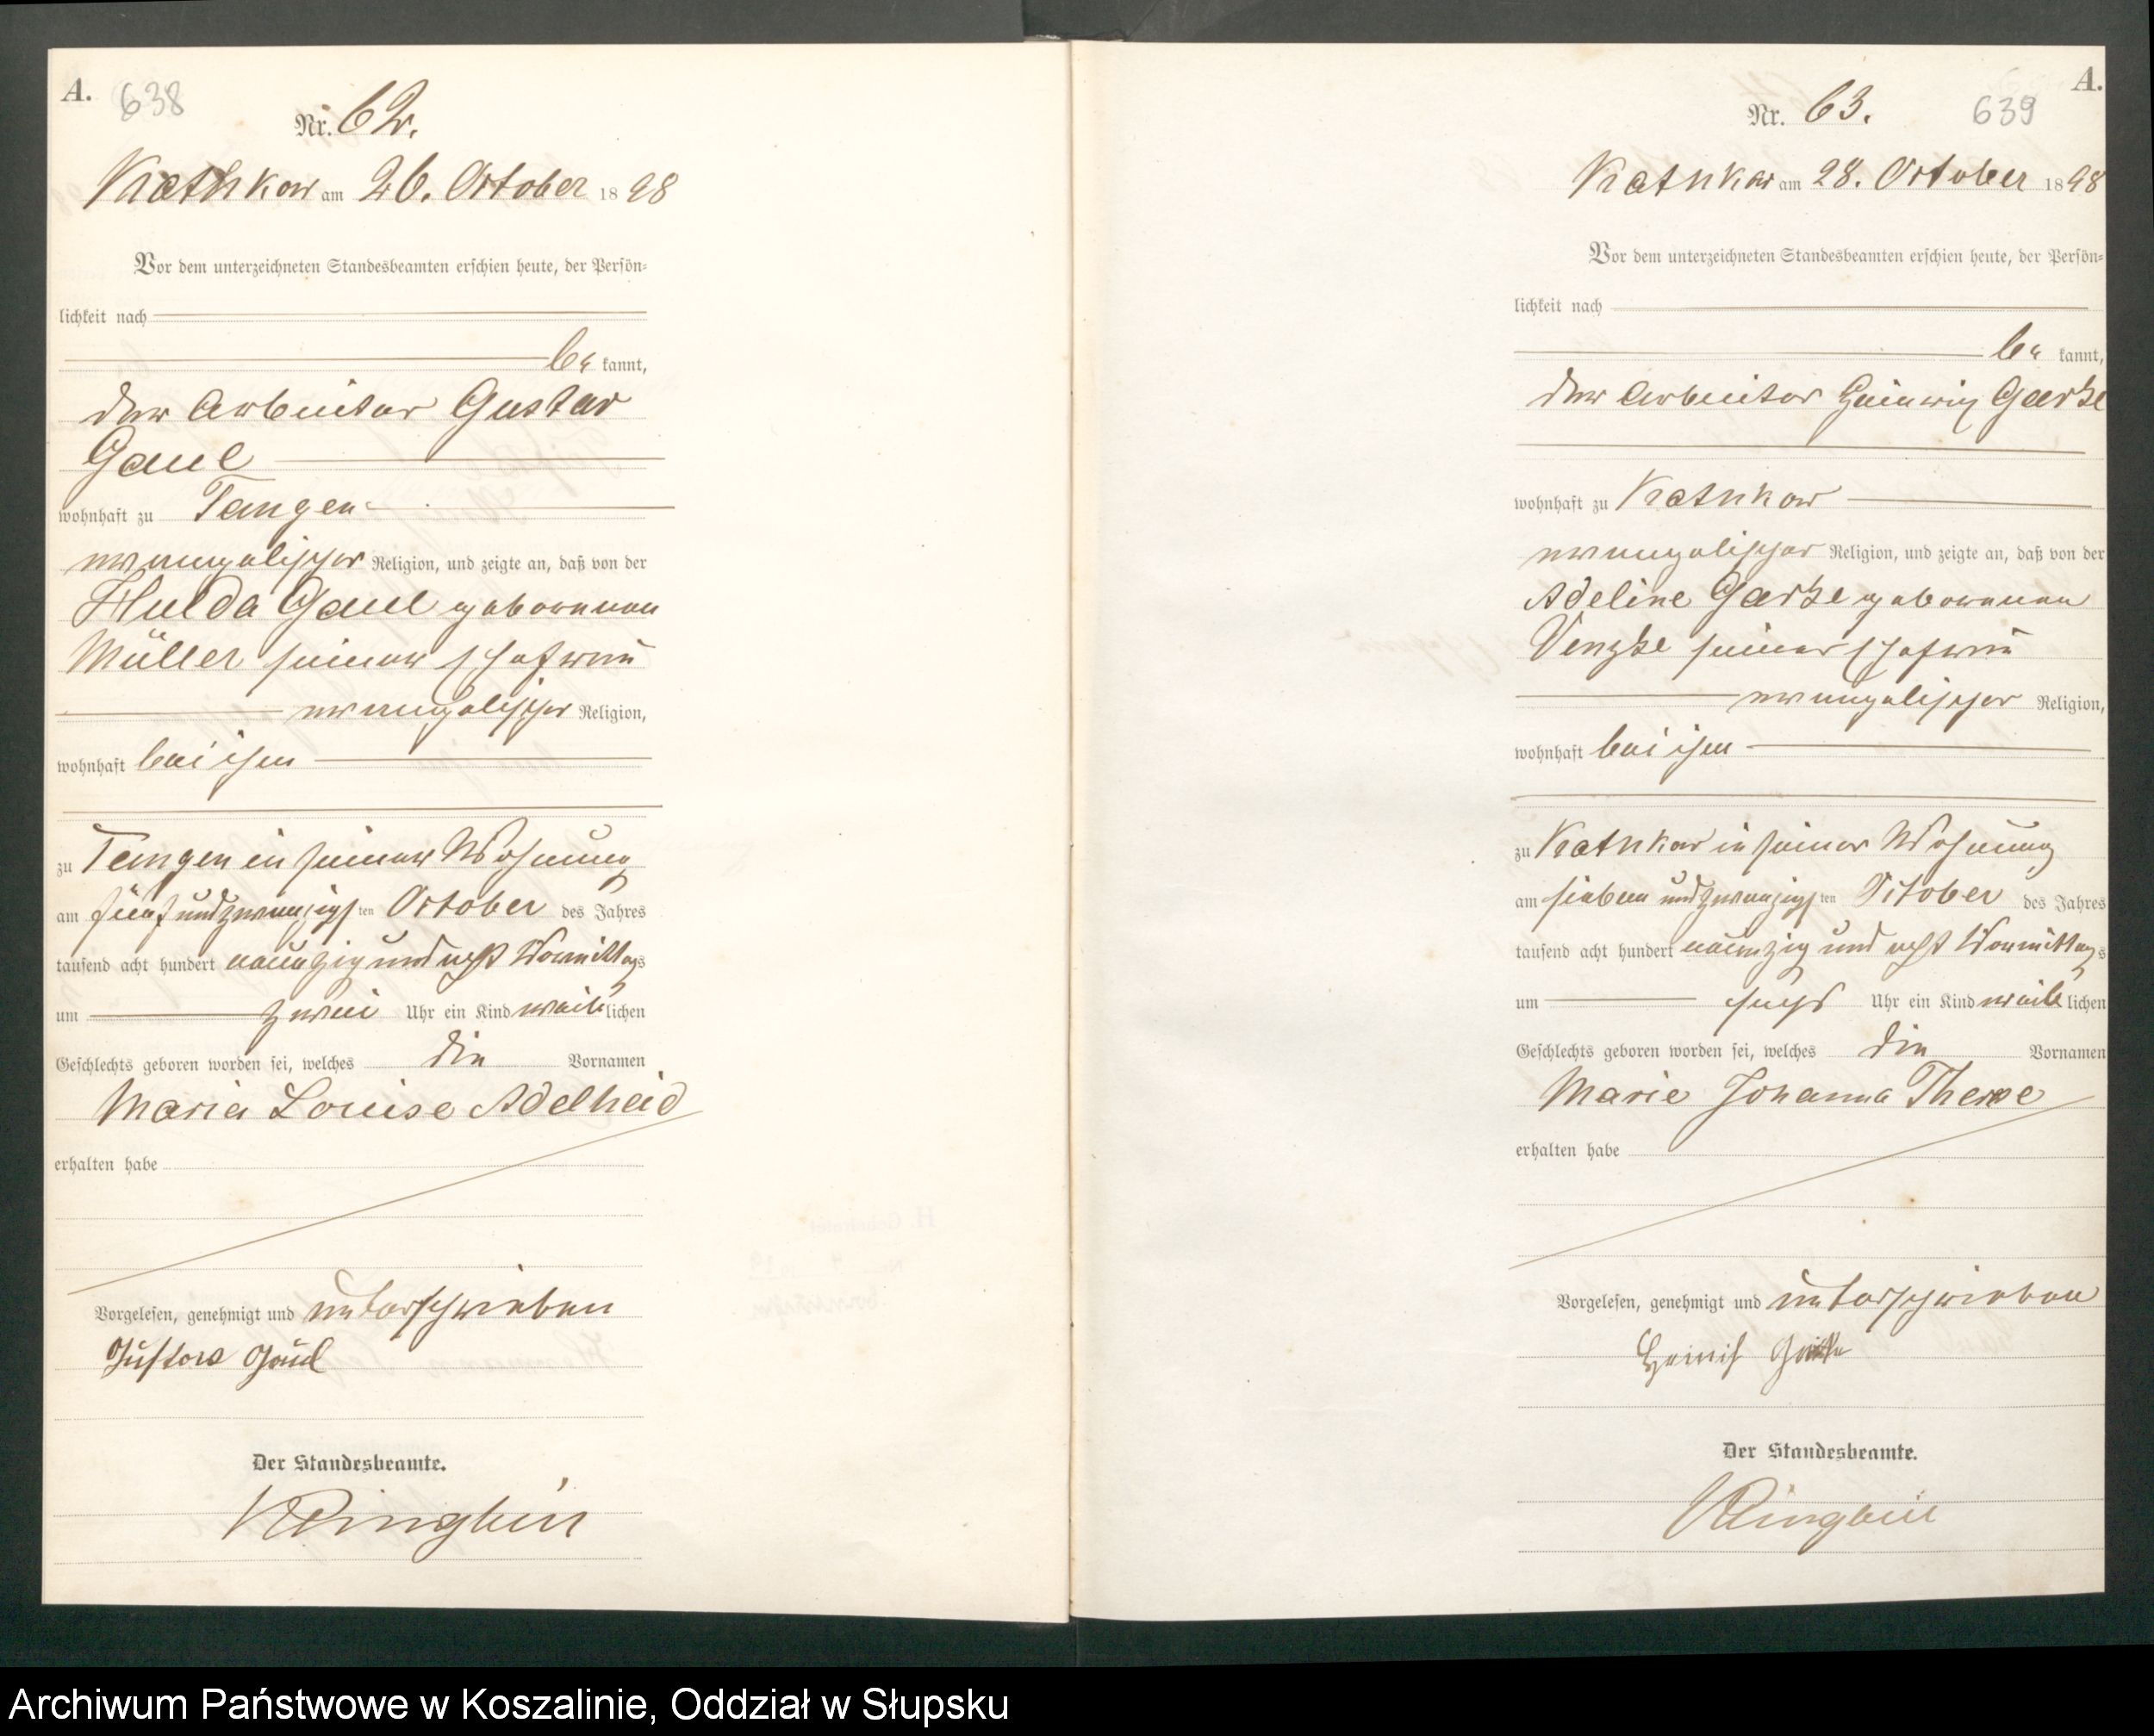 A. 638
Nr. 62.
Kathkow am 26. October 1898
Vor dem unterzeichneten Standesbeamten erschien heute, der Persön-
lichkeit nach
be kannt,
der Arbeiter Gustav
Gaul
wohnhaft zu Tangen
evangelischer Religion, und zeigte an, daß von der
Hulda Gaul geborenen
Müller seiner Ehefrau
evangelischer Religion,
wohnhaft bei ihm
zu Tangen in seiner Wohnung
am fünf und zwanzigsten October des Jahres
tausend acht hundert neunzig und acht Vormittags
um zwei Uhr ein Kind weiblichen
Geschlechts geboren worden sei, welches die Vornamen
Maria Louise Adelheid
erhalten habe
Vorgelesen, genehmigt und unterschrieben
Gustav Gaul
Der Standesbeamte.
A.
Nr. 63. 639
Kathkow am 28. October 1898
Vor dem unterzeichneten Standesbeamten erschien heute, der Persön-
lichkeit nach
be kannt,
der Arbeiter Heinrich Garske
wohnhaft zu Kathkow
evangelischer Religion, und zeigte an, daß von der
Adeline Garske geborenen
Venzke seiner Ehefrau
evangelischer Religion,
wohnhaft bei ihm
zu Kathkow in seiner Wohnung
am sieben und zwanzigsten October des Jahres
tausend acht hundert neunzig und acht Vormittags
um sechs Uhr ein Kind weiblichen
Geschlechts geboren worden sei, welches die Vornamen
Marie Johanna Therese
erhalten habe
Vorgelesen, genehmigt und unterschrieben
Heinrich Garske
Der Standesbeamte.
Archiwum Państwowe w Koszalinie, Oddział w Słupsku